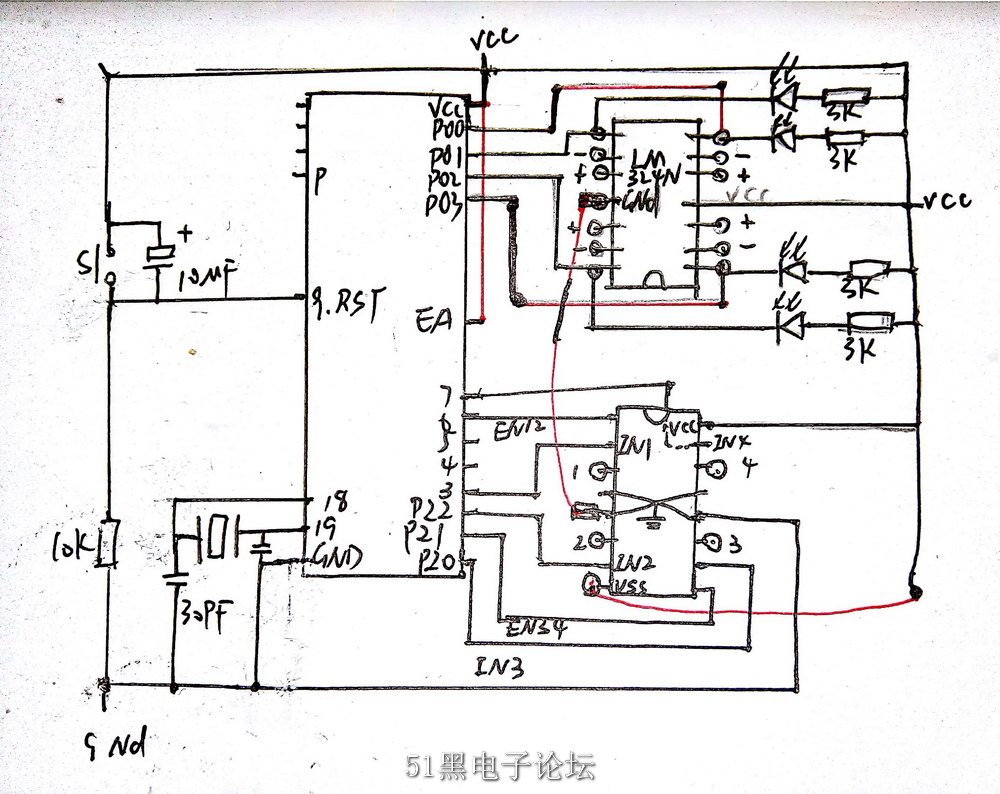 VCC
VCC
P00
P01
P02
P03
P
S1
+
10µF
9.RST
EA
LM
324N
GNd
-
+
+
-
-
+
+
-
VCC
VCC
3K
3K
3K
3K
7
6
5
4
3
P22
P21
P20
18
19
GND
10K
30PF
EN12
IN1
VCC
IN4
1
4
2
3
IN2
VSS
EN34
IN3
GNd
51黑电子论坛